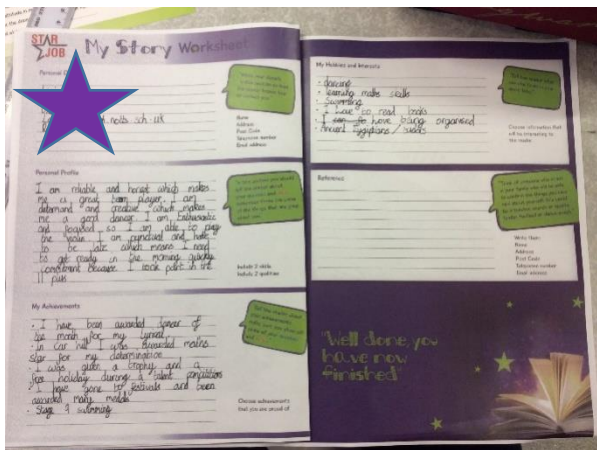 STAR
JOB
My Story Worksheet
Personal
notts.sch.uk
Name
Address
Post Code
Telephone number
Email address
Personal Profile
I am reliable and honest which makes
me a great team player. I am
determined and creative which makes
me a good dancer. I am enthusiastic
and focused so I am able to play
the violin. I am punctual and hate
to be late which means I need
to get ready in the morning quickly
because I took part in the
Include 2 skills
Include 2 qualities
My Achievements
· I have been awarded dancer of
the month for my lyrical
· In car hall I was awarded maths
star for my determination
· I was given a trophy and a
free holiday during a talent competition
· I have gone to festivals and been
awarded many medals
· Stage 9 swimming
Choose achievements
that you are proud of
My Hobbies and Interests
· dancing
· learning maths skills
· Swimming
· I love to read books
· I love being organised
· Ancient Egyptians /
Choose information that
will be interesting to
the reader
Reference
Write their:
Name
Address
Post Code
Telephone number
Email address
"Well done, you
have now
finished"